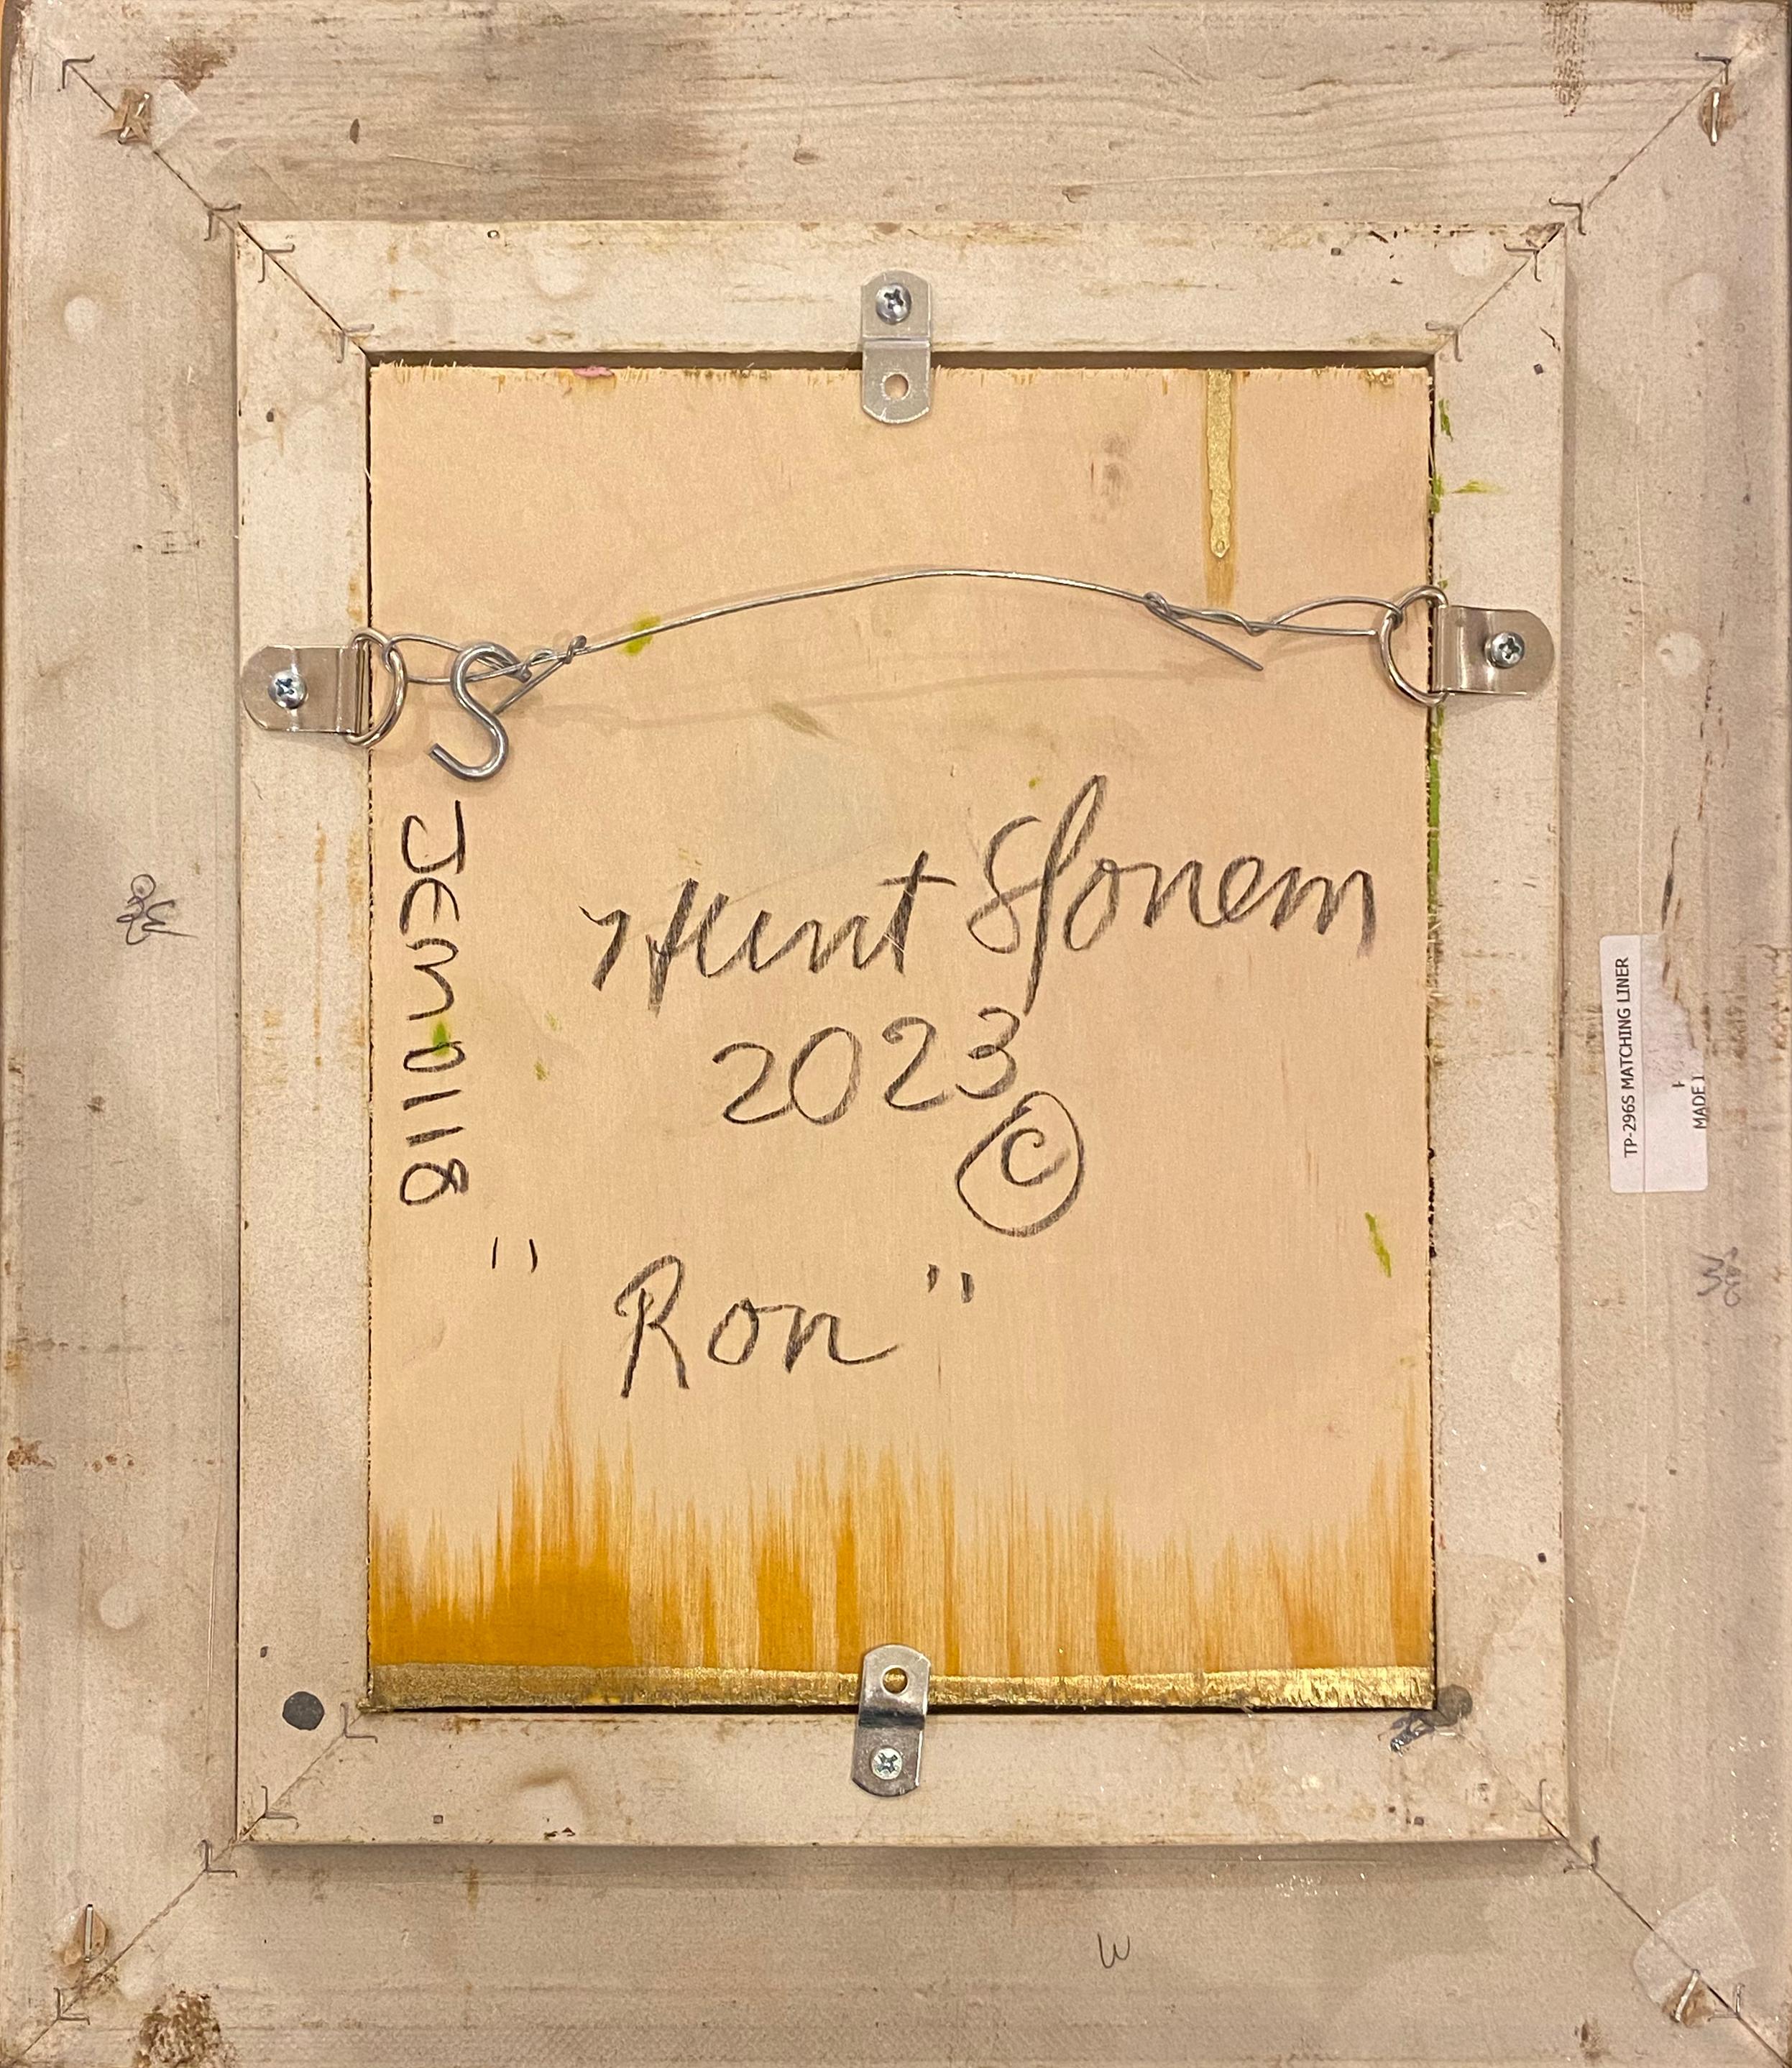 Hunt Slonem
2023
©
"Ron"
TP-296S MATCHING LINER
MADE
W